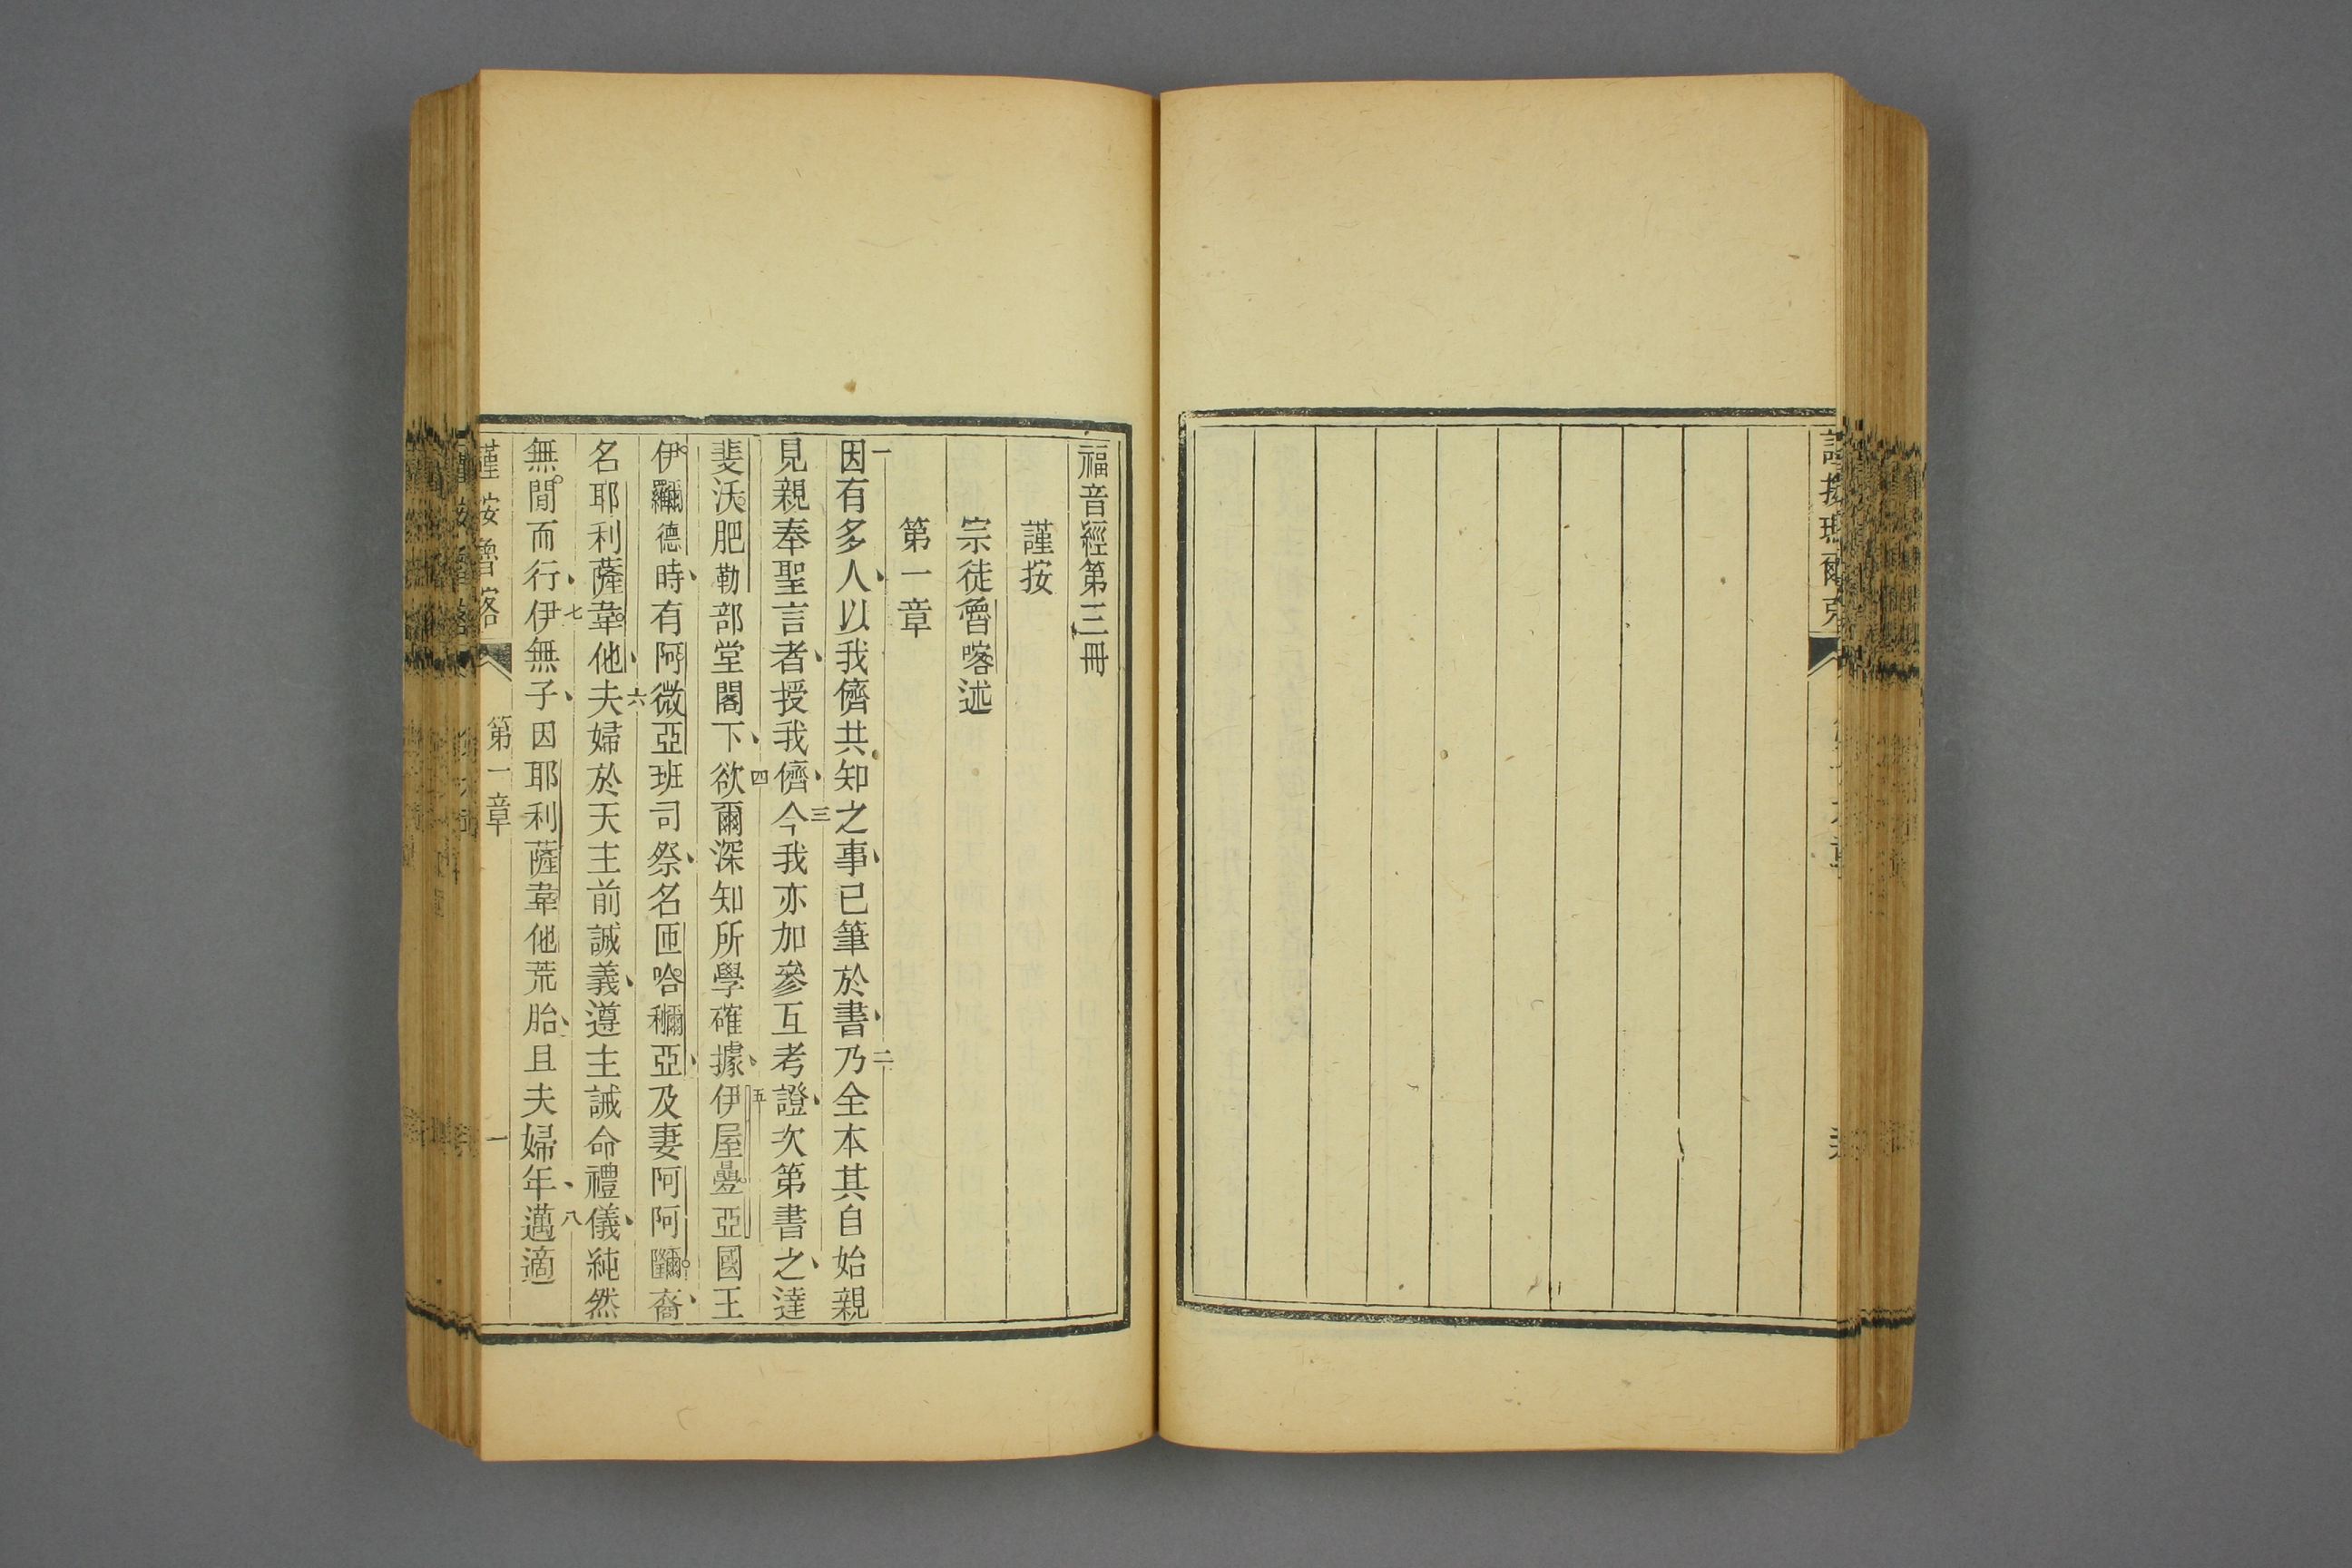 福音經第三冊
謹按
宗徒魯喀述
第一章
一因有多人、以我儕共知之事、已筆於書、二乃全本其自始親
見親奉聖言者、授我儕、三今我亦加參互考證、次第書之、達
斐沃肥勒部堂閣下、四欲爾深知所學確據、五伊屋疊亞國王
伊德時、有阿微亞班司祭、名匝哈亞、及妻阿阿裔、
名耶利薩韋他、六夫婦於天主前誠義、遵主誡命禮儀、純然
無間而行、七伊無子、因耶利薩韋他荒胎、且夫婦年邁、八適
謹按魯喀 第一章 一